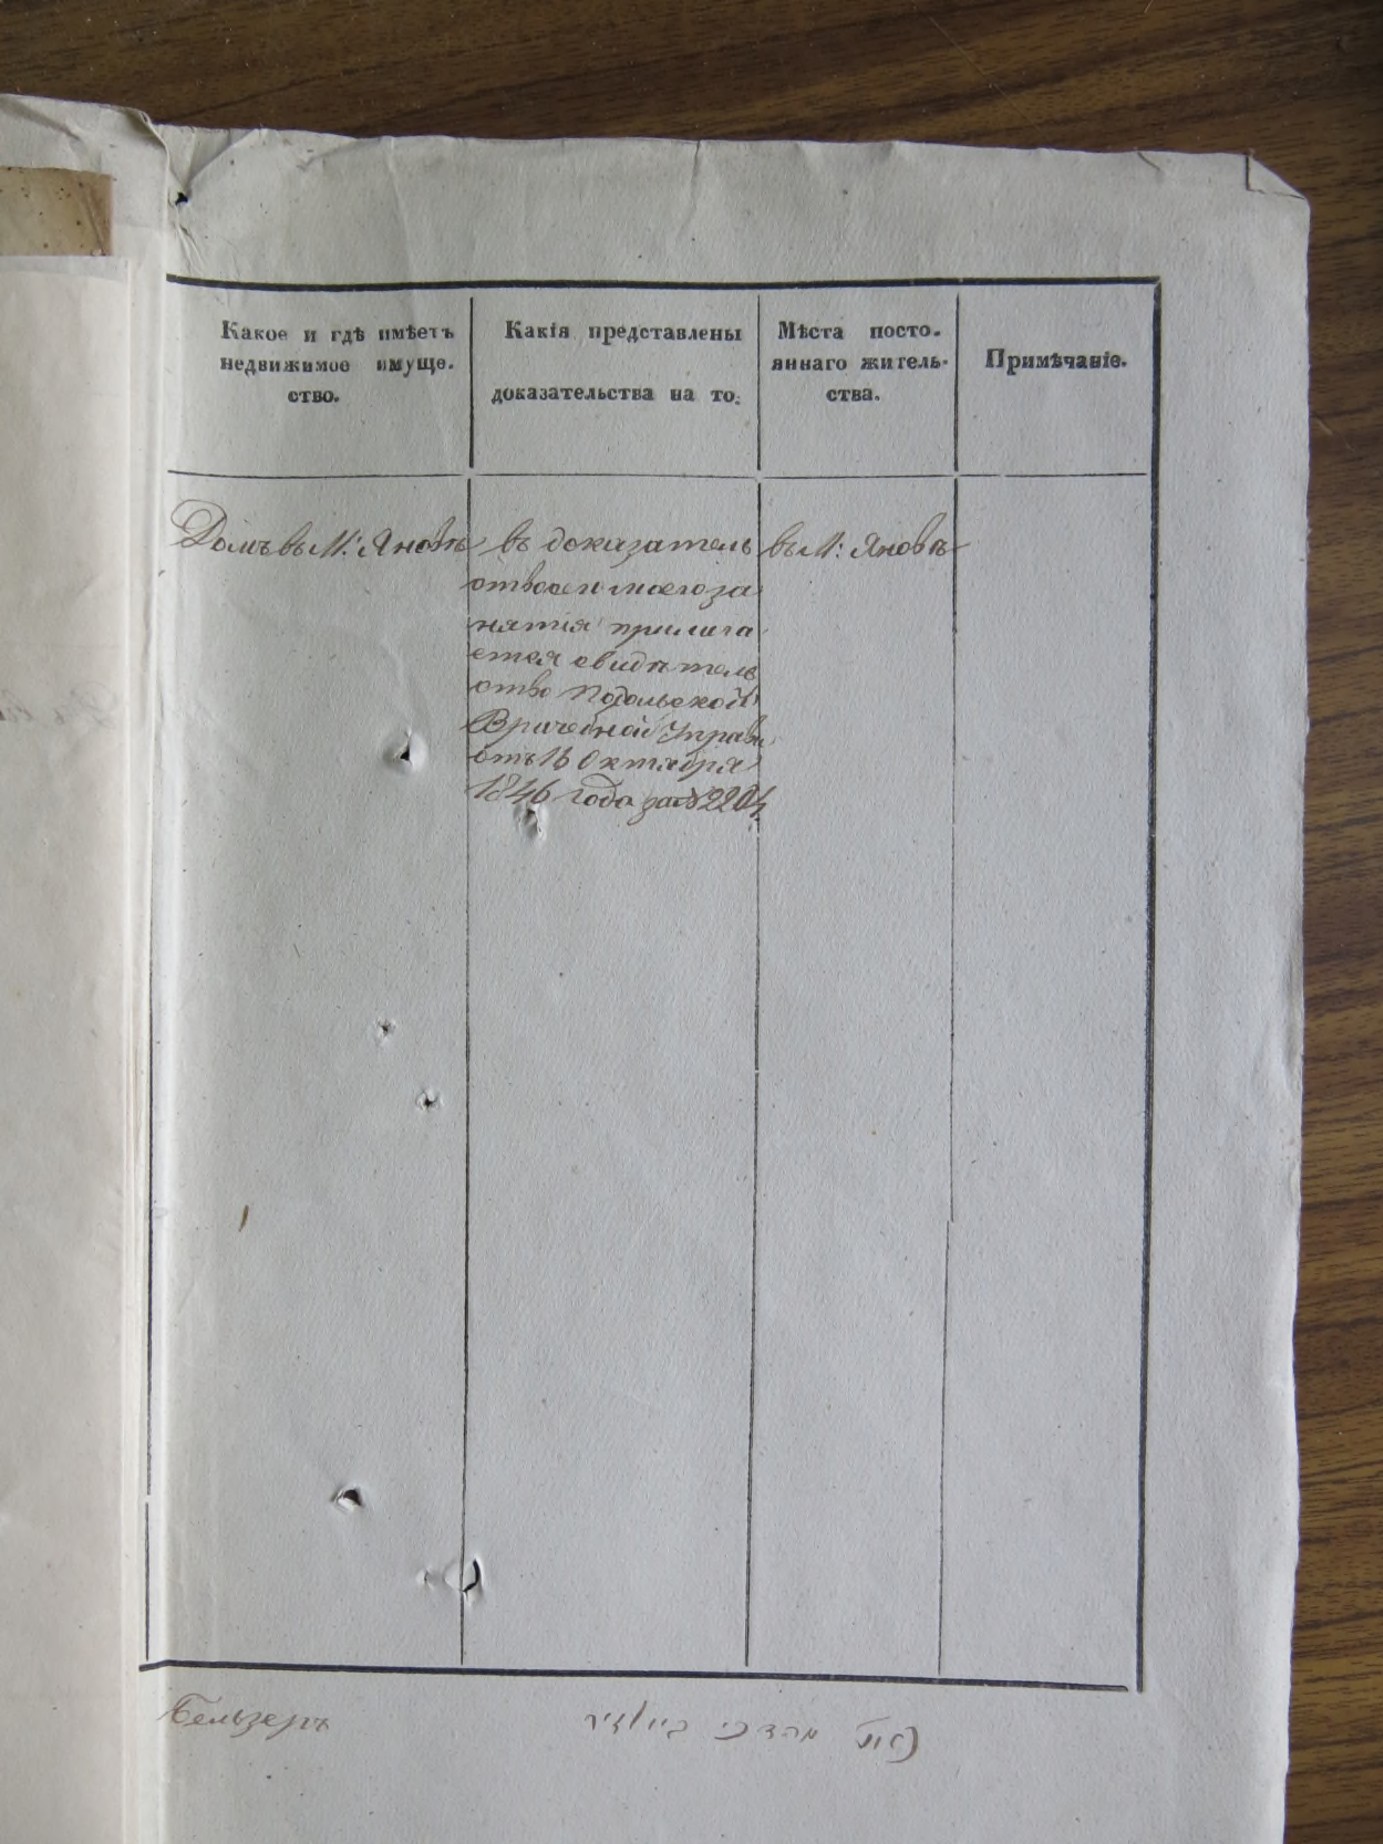 Какое и гдѣ имѣетъ
недвижимое имуще-
ство.
Какія представлены
доказательства на то:
Мѣста посто-
яннаго житель-
ства.
Примѣчаніе.
Домъ въ М: Яновѣ
въ доказатель
ство моего за
нятія прилага
ется свидѣтель
ство Подольской
Врачебной Управы
отъ 16 Октября
1846 года за № 2204
въ М: Яновѣ
Бельзеръ
מרדכי